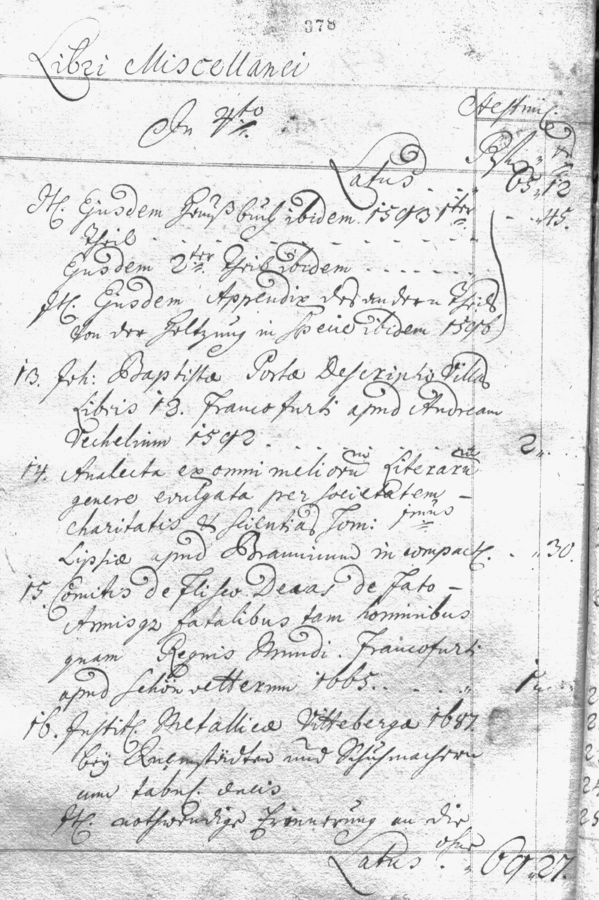 378
Libri Miscellanei
Aestim.
In 4to
Latus . . . 65 „ 12
It. Ejusdem Haußbuch ibidem. 1593 1ter . . „45.
Theil . . . . . . . .
Ejusdem 2ter Theil ibidem . . . . .
It. Ejusdem Appendix des andern Theils
von der Holtzung in specie ibidem 1596
13. Joh: Baptistæ Portæ Descriptio Villæ
Libris 12. Francofurti apud Andream
Wechelium 1592 . . . . 2„
14. Analecta ex omni meliorū Literarū
genere evulgata per Societatem
charitatis & Scientiar Tom: 1mus
Lipsiæ apud Braunium in compact. . „30.
15. Comitis de Flisco Decas de Fato
Annisq fatalibus tam hominibus
quam Regnis Mundi. Francofurti
apud Schönwetterum 1665. . . „ 1„
16. Instit. Metallicæ Wittebergæ 1687.
bey und Schuhmachern
cum tabul. æneis
It. nothwendige Erinnerung an die
ohne
Latus . „ 69„27.